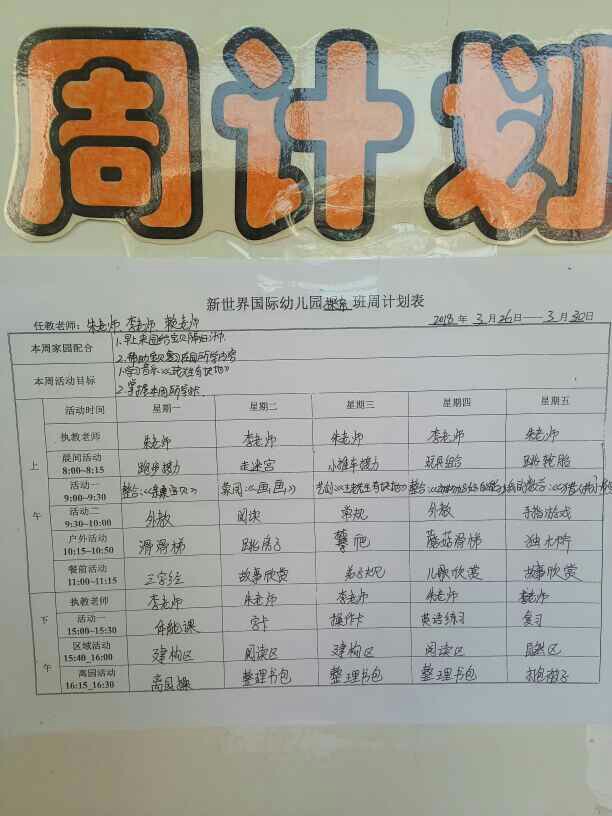 周计划
新世界国际幼儿园 班周计划表
任教老师：朱老师 李老师 赖老师 2018 年 3 月 26 日——3 月 30 日
本周家园配合 1.早上来园给宝贝隔汗巾.
2.帮助宝贝复习在园所学内容
本周活动目标 1.学习音乐《王老先生有块地》
2.掌握本周所学
上午 活动时间 星期一 星期二 星期三 星期四 星期五
执教老师 朱老师 李老师 朱老师 李老师 朱老师
晨间活动 8:00~8:15 跑步接力 走迷宫 小推车接力 玩具组合 跳轮胎
活动一 9:00~9:30 整合:《 宝贝》 蒙阅:《画画》 艺创:《王老先生有块地》 整合:
活动二 9:30~10:00 外教 阅读 常规 外教 手指游戏
户外活动 10:15~10:50 滑滑梯 跳房子 攀爬 蘑菇滑梯 独木桥
餐前活动 11:00~11:15 三字经 故事欣赏 弟子规 儿歌欣赏 故事欣赏
下午 执教老师 李老师 朱老师 李老师 朱老师 李老师
活动一 15:00~15:30 体能课 字卡 操作卡 英语练习 复习
区域活动 15:40_16:00 建构区 阅读区 建构区 阅读区
离园活动 16:15_16:30 离园操 整理书包 整理书包 整理书包 抱被子